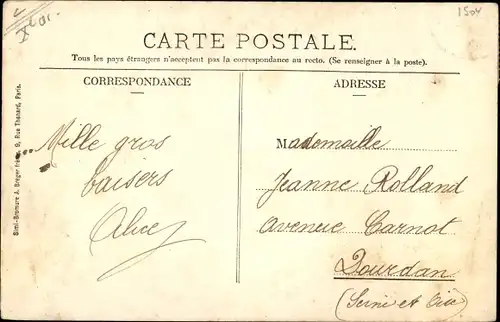 1504
CARTE POSTALE.
Tous les pays étrangers n'acceptent pas la correspondance au recto. (Se renseigner à la poste).
CORRESPONDANCE
ADRESSE
Mille gros
baisers
Alice
Mademoiselle
Jeanne Rolland
avenue Carnot
Dourdan
(Seine et Oise)
Simi-Bromure A. Breger frères, 9, Rue Thénard, Paris.